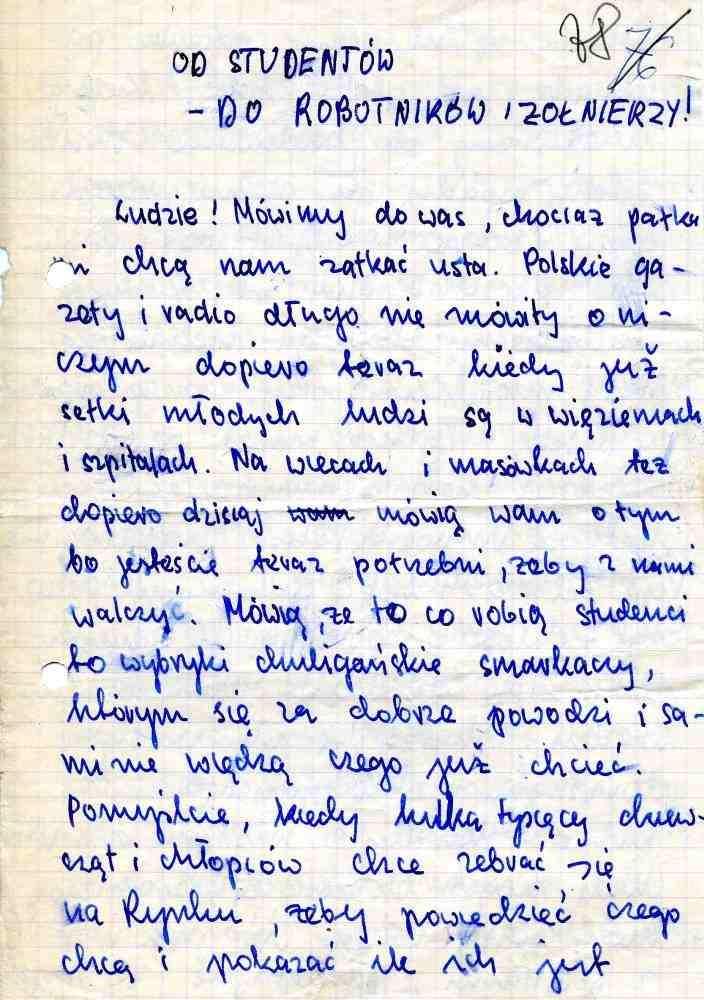 78 76
OD STUDENTÓW
- DO ROBOTNIKÓW I ŻOŁNIERZY!
Ludzie! Mówimy do was, chociaż pałka
mi chcą nam zatkać usta. Polskie ga-
zety i radio długo nie mówiły o ni-
czym dopiero teraz kiedy już
setki młodych ludzi są w więzieniach
i szpitalach. Na wiecach i masówkach też
dopiero dzisiaj wam mówią wam o tym
bo jesteście teraz potrzebni, żeby z nami
walczyć. Mówią, że to co robią studenci
to wybryki chuligańskie smarkaczy,
którym się za dobrze powodzi i sa-
mi nie wiedzą czego już chcieć.
Pomyślcie, kiedy kilka tysięcy dziew-
cząt i chłopców chce zebrać się
na Rynku, żeby powiedzieć czego
chcą i pokazać ile ich jest